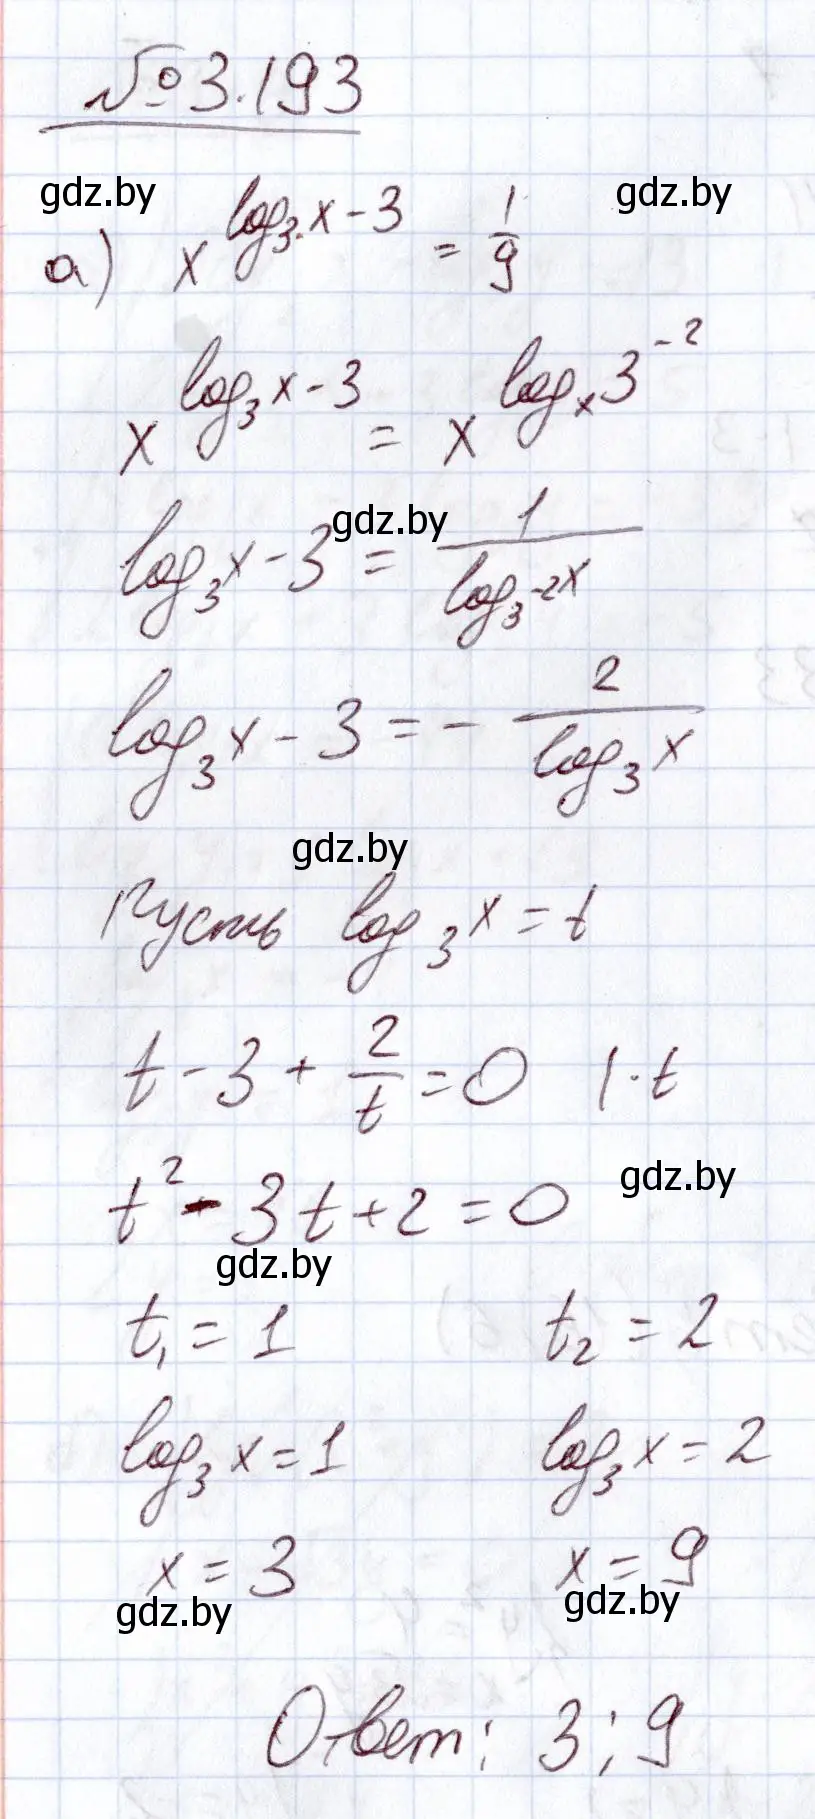 № 3.193
gdz.by gdz.by
а) x^(log₃ x - 3) = 1/9
x^(log₃ x - 3) = x^(logₓ 3⁻²)
gdz.by
log₃ x - 3 = 1/(log₃₋₂ x)
log₃ x - 3 = - 2/(log₃ x)
gdz.by
Пусть log₃ x = t
t - 3 + 2/t = 0 | · t
gdz.by
t² - 3t + 2 = 0
gdz.by
t₁ = 1 t₂ = 2
log₃ x = 1 log₃ x = 2
x = 3 x = 9
gdz.by gdz.by
Ответ: 3; 9